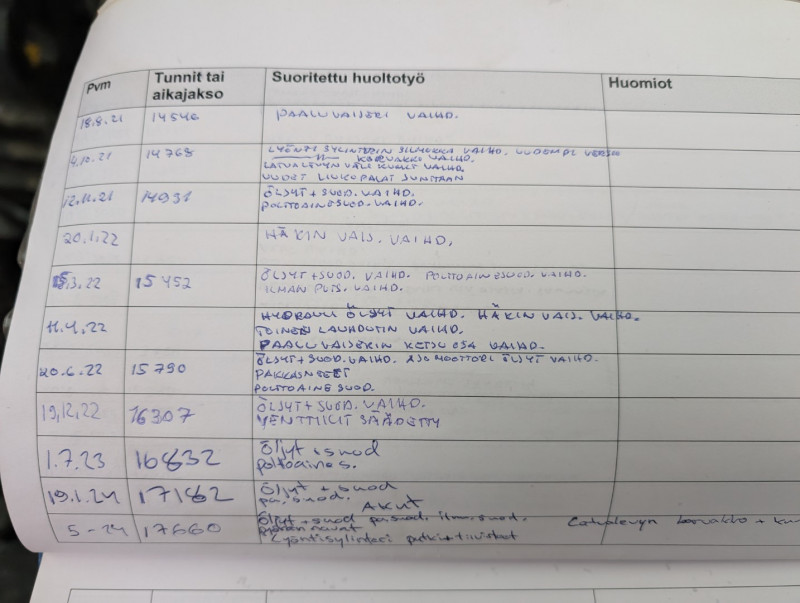 Pvm Tunnit tai aikajakso Suoritettu huoltotyö Huomiot
18.8.21 14546 PAALUVAIJERI VAIHD.
4.10.21 14768 LYÖNTI SYLINTERIN SILMUKKA VAIHD. UUDEMPI VERSIO
—"— KORVAKKO VAIHD.
LATVALEVYN VÄLI VAIHD.
UUDET LIUKUPALAT
12.11.21 14931 ÖLJYT + SUOD. VAIHD.
POLTTOAINESUOD. VAIHD.
20.1.22 HÄKIN VAIJ. VAIHD.
3.22 15452 ÖLJYT + SUOD. VAIHD. POLTTOAINESUOD. VAIHD.
ILMAN PUTS. VAIHD.
11.4.22 HYDRAULI ÖLJYT VAIHD. HÄKIN VAIJ. VAIHD.
TOINEN LAUHDUTIN VAIHD.
PAALUVAIJERIN KETJU OSA VAIHD.
20.6.22 15790 ÖLJYT + SUOD. VAIHD. AJO MOOTTORI ÖLJYT VAIHD.
PAKKASNEET
POLTTOAINE SUOD.
19.12.22 16307 ÖLJYT + SUOD. VAIHD.
VENTTIILIT SÄÄDETTY
1.7.23 16832 Öljyt + suod
polttoaine s.
19.1.24 17182 Öljyt + suod
pa. suod. Akut
5-24 17660 Öljyt + suod pa.suod. ilm. suod. Latvalevyn korvakko +
Lyöntisylinteri putki + tiivisteet